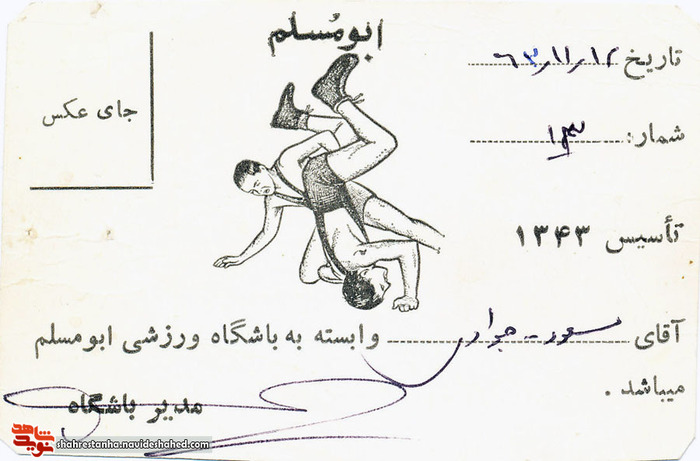 ابومسلم
تاریخ ۶۳/۱۱/۱۲
جای عکس
شماره: ۱۳
تأسیس ۱۳۴۳
آقای وابسته به باشگاه ورزشی ابومسلم
میباشد .
مدیر باشگاه
نوید شاهد
shahrestanha.navideshahed.com